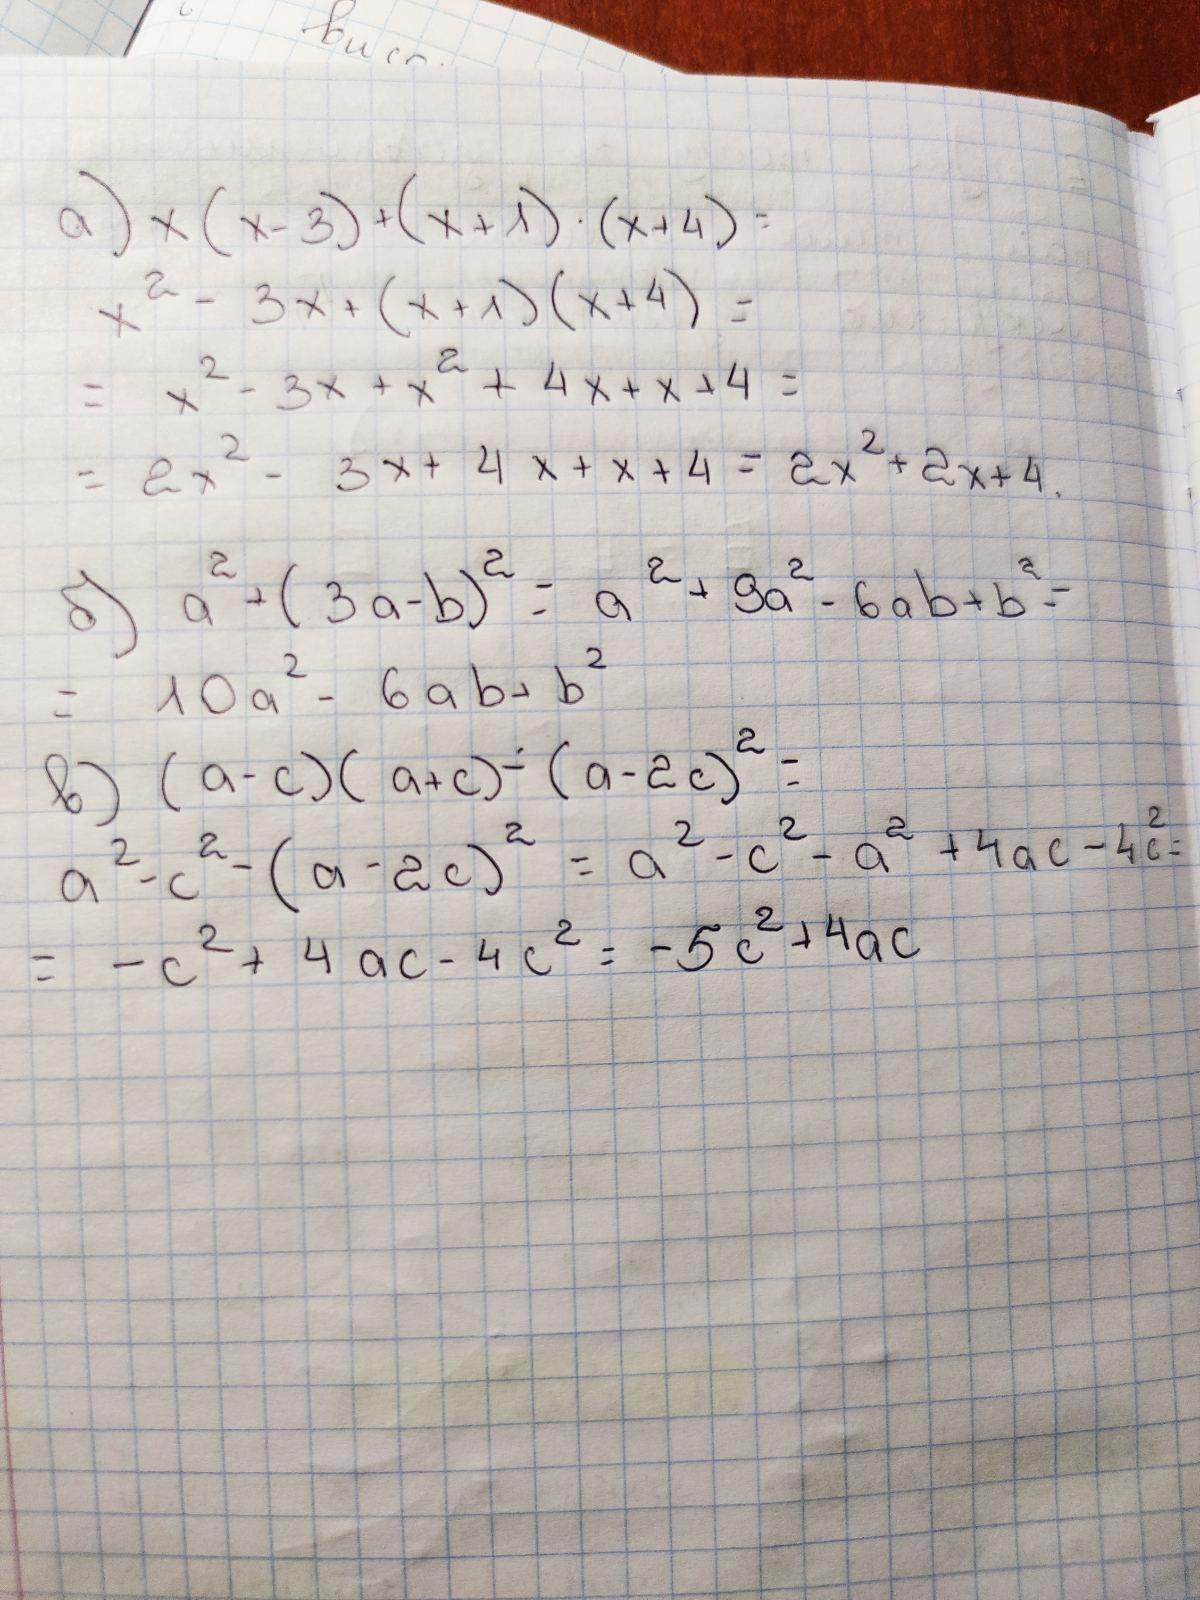 вист.
а) x(x-3)+(x+1)·(x+4)=
x² - 3x+(x+1)(x+4) =
= x² - 3x + x² + 4x + x + 4 =
= 2x² - 3x + 4x + x + 4 = 2x² + 2x + 4.
б) a² + (3a-b)² = a² + 9a² - 6ab + b² =
= 10a² - 6ab + b²
в) (a-c)(a+c) - (a-2c)² =
a² - c² - (a - 2c)² = a² - c² - a² + 4ac - 4c² =
= -c² + 4ac - 4c² = -5c² + 4ac